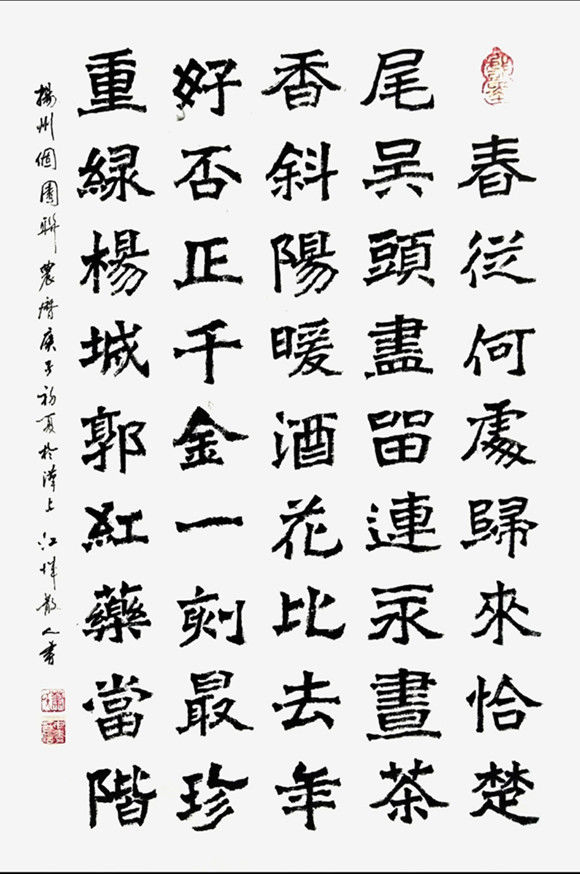 春從何處歸來恰楚
尾吳頭盡留連永晝茶
香斜陽暖酒花比去年
好否正千金一刻最珍
重綠楊城郭紅藥當階
揚州個園聯農曆庚子初夏於漢上江散人書